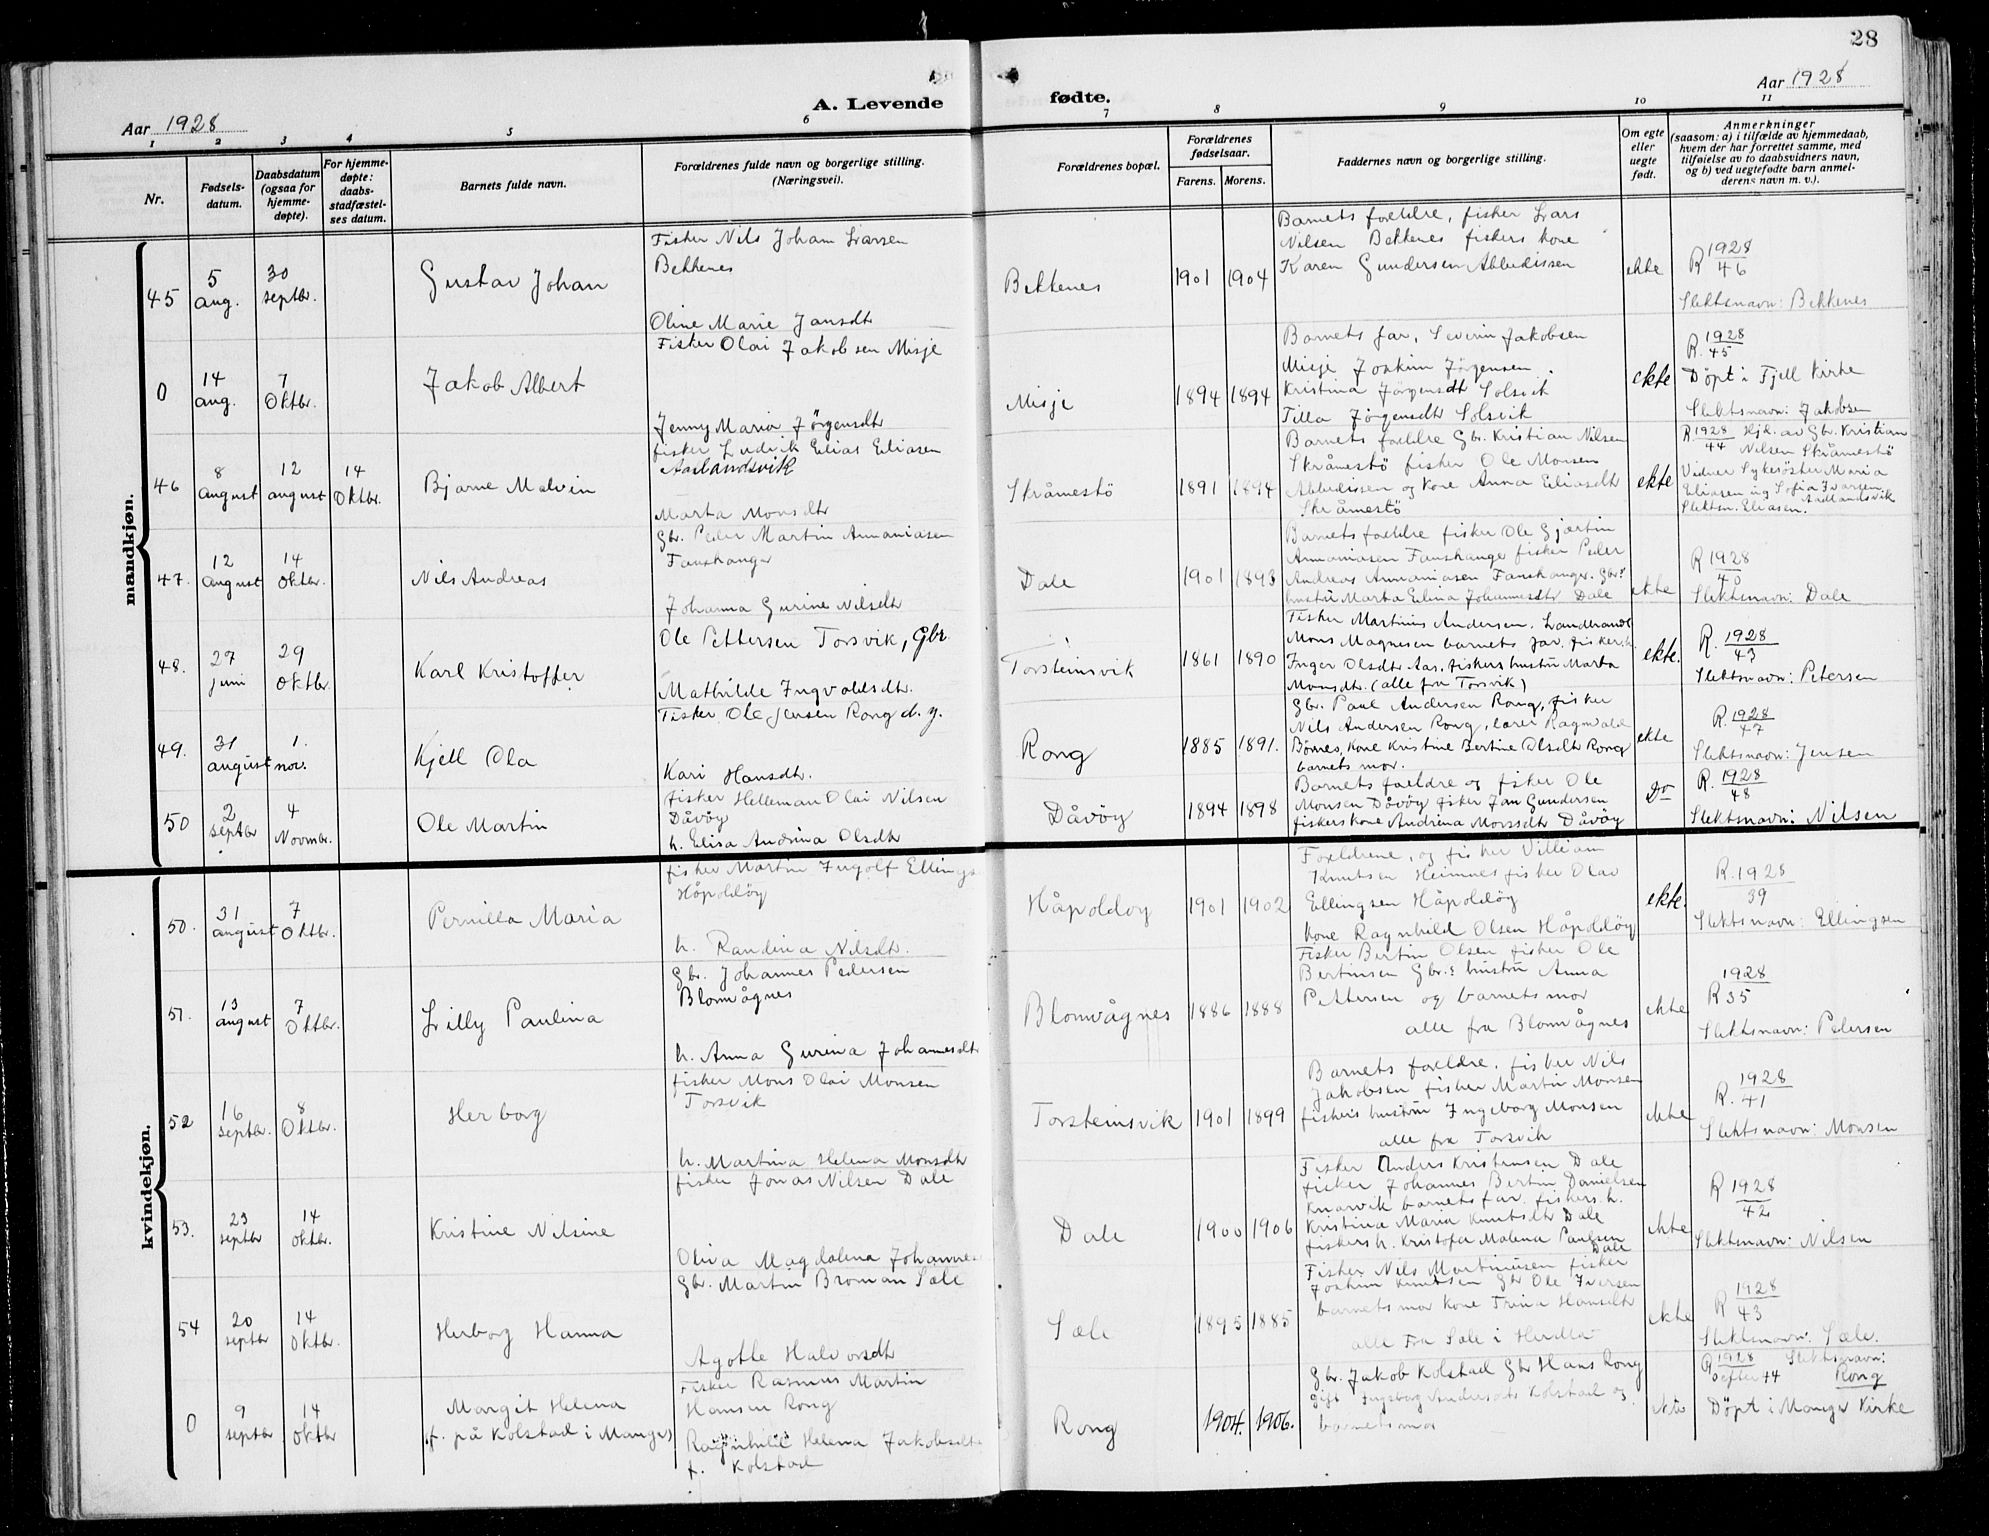 28
Aar 1928
A. Levende fødte.
Aar 1928
1 2 3 4 5 6 7 8 9 10 11
Nr.
Fødsels-
datum.
Daabsdatum
(ogsaa for
hjemme-
døpte).
For hjemme-
døpte:
daabs-
stadfæstel-
ses datum.
Barnets fulde navn.
Forældrenes fulde navn og borgerlige stilling.
(Næringsvei).
Forældrenes bopæl.
Forældrenes
fødselsaar.
Farens. Morens.
Faddernes navn og borgerlige stilling.
Om egte
eller
uegte
født.
Anmerkninger
(saasom: a) i tilfælde av hjemmedaab,
hvem der har forrettet samme, med
tilføielse av to daabsvidners navn,
og b) ved uegtefødte barn anmel-
derens navn m. v.).
mandkjøn.
45
5
aug.
30
septbr.
Gustav Johan
Fisker Nils Johan Larsen
Bekkenes
Oline Marie Jansdtr
Bekkenes
1901 1904
Barnets foreldre, fisker Lars
Nilsen Bekkenes fiskers kone
Karen Gundersen Abbedissen
ekte
R 1928
46
Slektsnavn: Bekkenes
0
14
aug.
7
Oktbr.
Jakob Albert
Fisker Olai Jakobsen Misje
Jenny Maria Jörgensdtr
Misje
1894 1894
Barnets far, Severin Jakobsen
Misje Joakim Jörgensen
Kristina Jörgensdtr Solsvik
Tilla Jörgensdtr Solsvik
ekte
R. 1928
45
Döpt i Fjell Kirke
Slektsnavn: Jakobsen
46
8
august
12
august
14
Oktbr.
Bjarne Malvin
fisker Ludvik Elias Eliasen
Aaslandsvik
Marta Monsdtr
Skråmestö
1891 1894
Barnets foreldre Gbr. Kristian Nilsen
Skråmestö fisker Ole Monsen
Abbedissen og kone Anna Eliasdtr
Skråmestö
ekte
R. 1928 Hjd. av Gbr. Kristian
44 Nilsen Skråmestö
Vidner Sykesöster Maria
Eliasen og Sofia Ivarsen
Aadlandsvik
Slektsn. Eliasen.
47.
12
august
14
Oktbr.
Nils Andreas
Gbr. Peder Martin Annaniasen
Fauskanger
Johanna Gurine Nilsdtr
Dale
1901 1893
Barnets foreldre fisker Ole Gjertin
Annaniasen Fauskanger fisker Peder
Andreas Annaniasen Fauskanger. Gbr.s
hustru Marta Elina Johannesdtr Dale
ekte
R 1928
40
Slektsnavn: Dale
48.
27
juni
29
Oktbr.
Karl Kristoffer
Ole Pettersen Torsvik, Gbr.
Mathilde Ingvaldsdtr.
Torsteinsvik
1861 1890
Fisker Martinus Andersen, Landhandl
Mons Magnesen barnets far, fisker h.
Inger Olsdtr Aas, fiskers hustru Marta
Monsdtr. (alle fra Torsvik)
ekte.
R. 1928
43
Slektsnavn: Petersen
49.
31
august
1.
nov.
Kjell Ola
Fisker Ole Jensen Rong d. y.
Kari Hansdtr.
Rong
1885 1891.
Gbr. Paul Andersen Rong, fisker
Nils Andersen Rong, lærer Ragnvald
Börnes, kone Kristine Bertine Olsdtr Rong
barnets mor.
ekte
R. 1928
47
Slektsnavn: Jensen
50
2
septbr
4
Novmbr.
Ole Martin
fisker Helleman Olai Nilsen
Dåvöy
h. Elisa Andrina Olsdtr
Dåvöy
1894 1898
Barnets foreldre og fisker Ole
Monsen Dåvöy fisker Jan Gundersen
fiskers kone Andrina Monsdtr Dåvöy
Do
R. 1928
48
Slektsnavn: Nilsen
kvindekjøn.
50.
31
august
7
Oktbr.
Pernilla Maria
fisker Martin Ingolf Ellings
Håpoldöy
h. Randina Nilsdtr.
Håpoldoy
1901 1902
Foreldrene, og fisker Villiam
Knutsen Heimnes fisker Olai
Ellingsen Håpoldöy
Kone Ragnhild Olsen Håpoldöy
ekte.
R. 1928
39
Slektsnavn: Ellingsen
51.
13
august
7
Oktbr.
Lilly Paulina
Gbr. Johannes Pedersen
Blomvågnes
h. Anna Gurina Johannesdtr
Blomvågnes
1886 1888
Fisker Bertin Olsen fisker Ole
Bertinsen Gbr.s hustru Anna
Pettersen og barnets mor
alle fra Blomvågnes
ekte
1928
R 35
Slektsnavn: Pedersen
52
16
septbr.
8
Oktbr.
Herborg
fisker Mons Olai Monsen
Torsvik
h. Martina Helena Monsdtr
Torsteinsvik
1901 1899
Barnets foreldre, fisker Nils
Jakobsen fisker Martin Monsen
fiskers hustru Ingeborg Monsen
alle fra Torsvik
ekte
R. 1928
41
Slektsnavn: Monsen
53.
23
septbr
14
oktbr.
Kristine Nilsine
fisker Jonas Nilsen Dale
Oliva Magdalena Johannes
Dale
1900 1906
Fisker Anders Kristensen Dale
fisker Johannes Bertin Danielsen
Knarvik barnets far. fiskers h.
Kristina Maria Knutsdtr Dale
fiskers h. Kristofa Malena Paulsen
Dale
ekte
R 1928
42
Slektsnavn: Nilsen
54
20
septbr
14
Oktbr.
Herborg Hanna
Gbr. Martin Broman Sæle
Agothe Halvorsdtr
Sæle
1895 1885
Fisker Nils Martinusen fisker
Joakim Knutsen Gbr Ole Iversen
barnets mor Kone Trina Hansdtr
alle fra Sæle i Herdla
ekte
R 1928
43
Slektsnavn: Sæle.
0
9
septbr
14
oktbr
Margit Helena
f. på Kolstad i Manger)
Fisker Rasmus Martin
Hansen Rong
Ragnhild Helena Jakobsdtr
f. Kolstad
Rong
1904. 1906.
Gbr. Jakob Kolstad Gbr Hans Rong
Gift Ingeborg Andersdtr Kolstad og
barnets mor
ekte
R 1928 Slektsnavn:
0 efter 44 Rong
Döpt i Manger Kirke